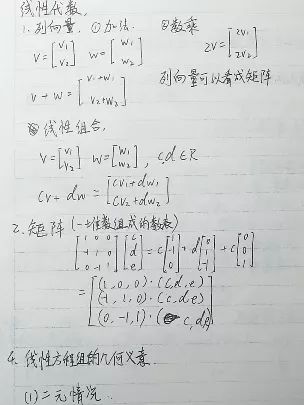 线性代数.
1. 列向量. ①加法. ②数乘
V = [v₁ v₂] w = [w₁ w₂] 2V = [2v₁ 2v₂]
v + w = [v₁+w₁ v₂+w₂] 列向量可以看成矩阵
③ 线性组合.
V = [v₁ v₂] w = [w₁ w₂], c d ∈ R
cv + dw = [cv₁+dw₁ cv₂+dw₂]
2. 矩阵 (一些数组成的数表)
[1 0 0 -1 1 0 0 -1 1] [c d e] = c[1 -1 0] + d[0 1 -1] + e[0 0 1]
= [(1, 0, 0)·(c, d, e) (-1, 1, 0)·(c, d, e) (0, -1, 1)·(c, d, e)]
4. 线性方程组的几何意义.
(1) 二元情况.